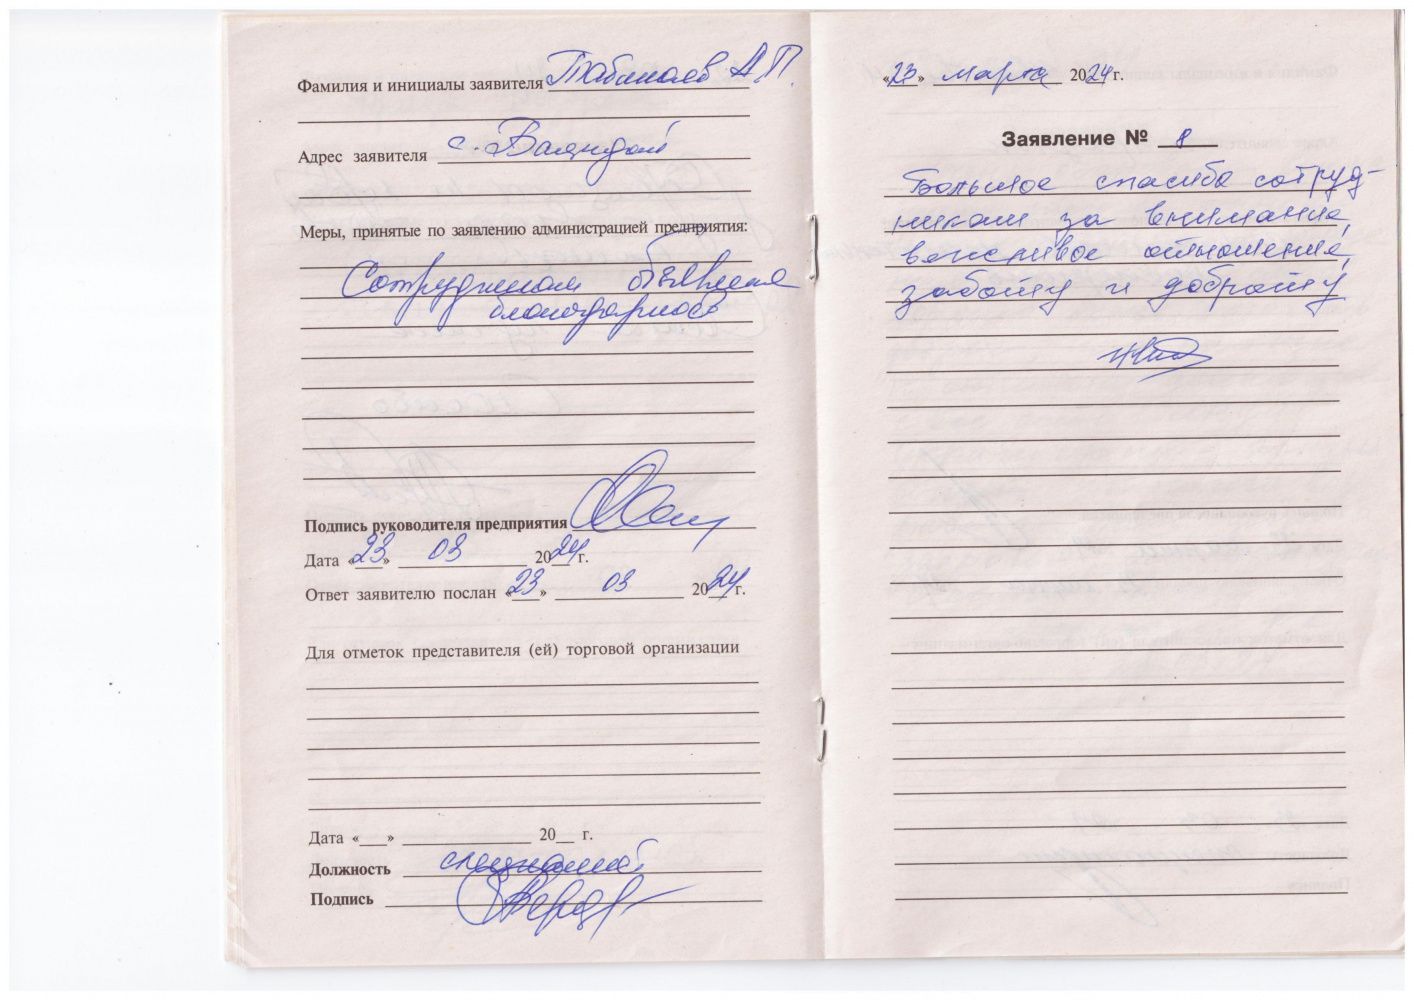 Фамилия и инициалы заявителя А П.
Адрес заявителя с.
Меры, принятые по заявлению администрацией предприятия:
Сотрудникам объявлена
благодарность
Подпись руководителя предприятия
Дата «23» 03 2024 г.
Ответ заявителю послан «23» 03 2024 г.
Для отметок представителя (ей) торговой организации
Дата «___» 20__ г.
Должность
Подпись
«23» марта 2024 г.
Заявление № 8
Большое спасибо сотруд-
никам за внимание,
вежливое отношение,
заботу и доброту